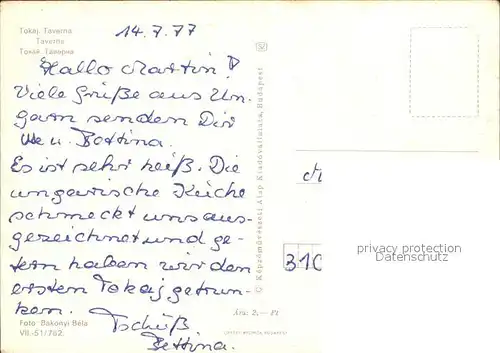 Tokaj. Taverna
Taverne
Токай. Таверна
14.7.77
Hallo Martin!
Viele Grüße aus Un-
garn senden Dir
Ute u. Bettina.
Es ist sehr heiß. Die
ungarische Küche
schmeckt uns aus-
gezeichnet und ge-
stern haben wir den
ersten Tokaj getrun-
ken. Tschüß.
Bettina.
Foto: Bakonyi Béla
VII.-51/762.
© Képzőművészeti Alap Kiadóvállalata, Budapest
Ára: 2,— Ft
310
privacy protection
Datenschutz